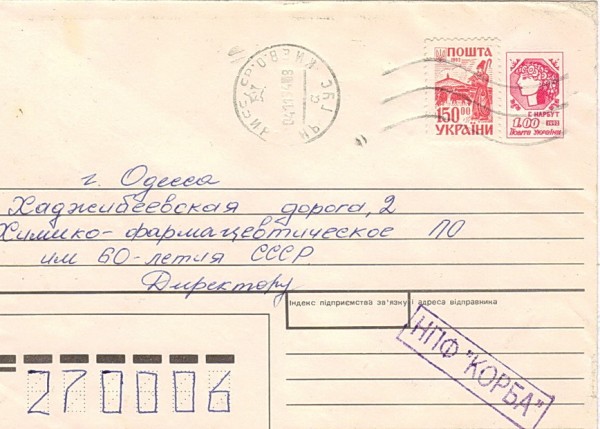 ПОШТА
1993
150.00
УКРАЇНИ
Г. НАРБУТ
1.00 1992
Пошта України
г. Одесса
Хаджибеевская дорога, 2
Химико-фармацевтическое ПО
им 60-летия СССР
Директору
Індекс підприємства зв'язку і адреса відправника
НПФ "КОРБА"
270006